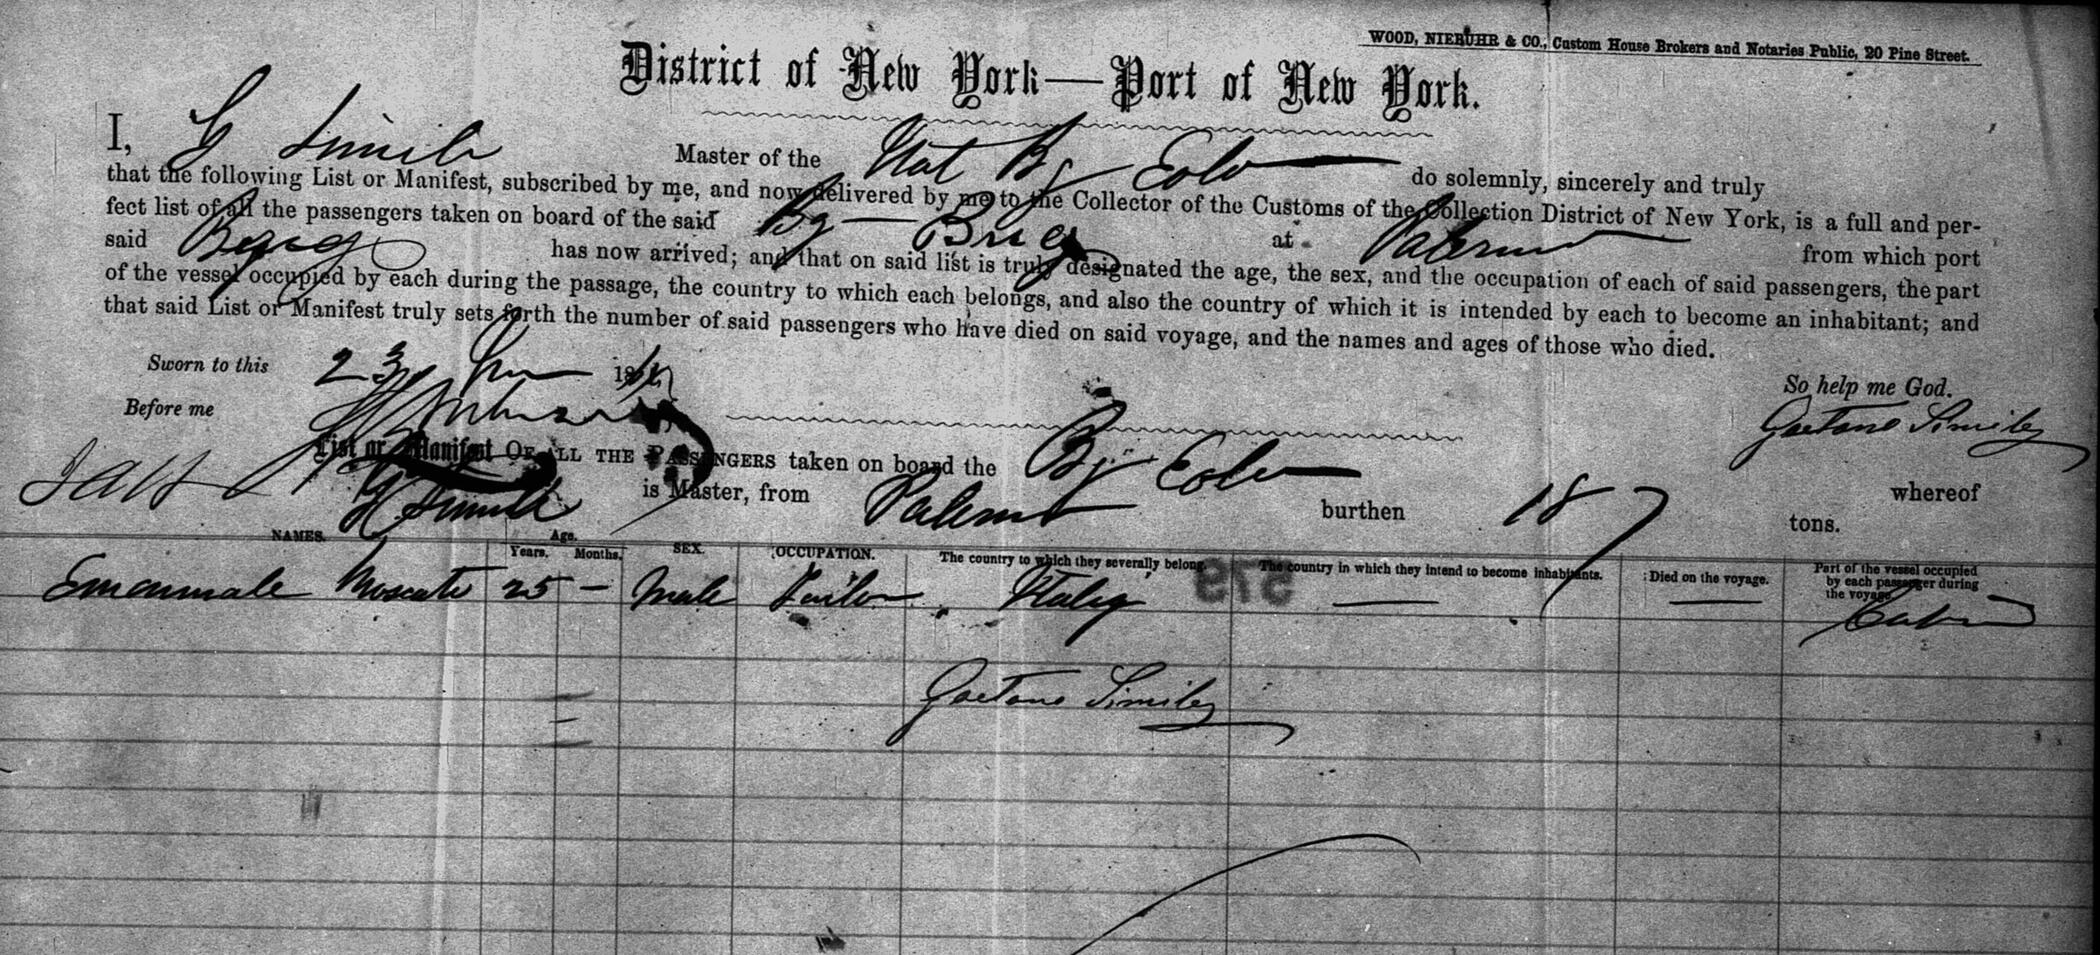 WOOD, NIEBUHR & CO., Custom House Brokers and Notaries Public, 20 Pine Street.
District of New York—Port of New York.
I, G Simile Master of the Ital Bg Eolo do solemnly, sincerely and truly
that the following List or Manifest, subscribed by me, and now delivered by me to the Collector of the Customs of the Collection District of New York, is a full and per-
fect list of all the passengers taken on board of the said Bg Brig at Palermo from which port
said Brig has now arrived; and that on said list is truly designated the age, the sex, and the occupation of each of said passengers, the part
of the vessel occupied by each during the passage, the country to which each belongs, and also the country of which it is intended by each to become an inhabitant; and
that said List or Manifest truly sets forth the number of said passengers who have died on said voyage, and the names and ages of those who died.
Sworn to this 23 18 So help me God.
Before me Gaetano Simile
List or Manifest OF ALL THE PASSENGERS taken on board the Bg Eolo whereof
G Simile is Master, from Palermo burthen 187 tons.
NAMES. Age. Years. Months. SEX. OCCUPATION. The country to which they severally belong. The country in which they intend to become inhabitants. Died on the voyage. Part of the vessel occupied by each passenger during the voyage.
Emanuale Moscato 25 – Male Tailor Italy — — Cabin
Gaetano Simile